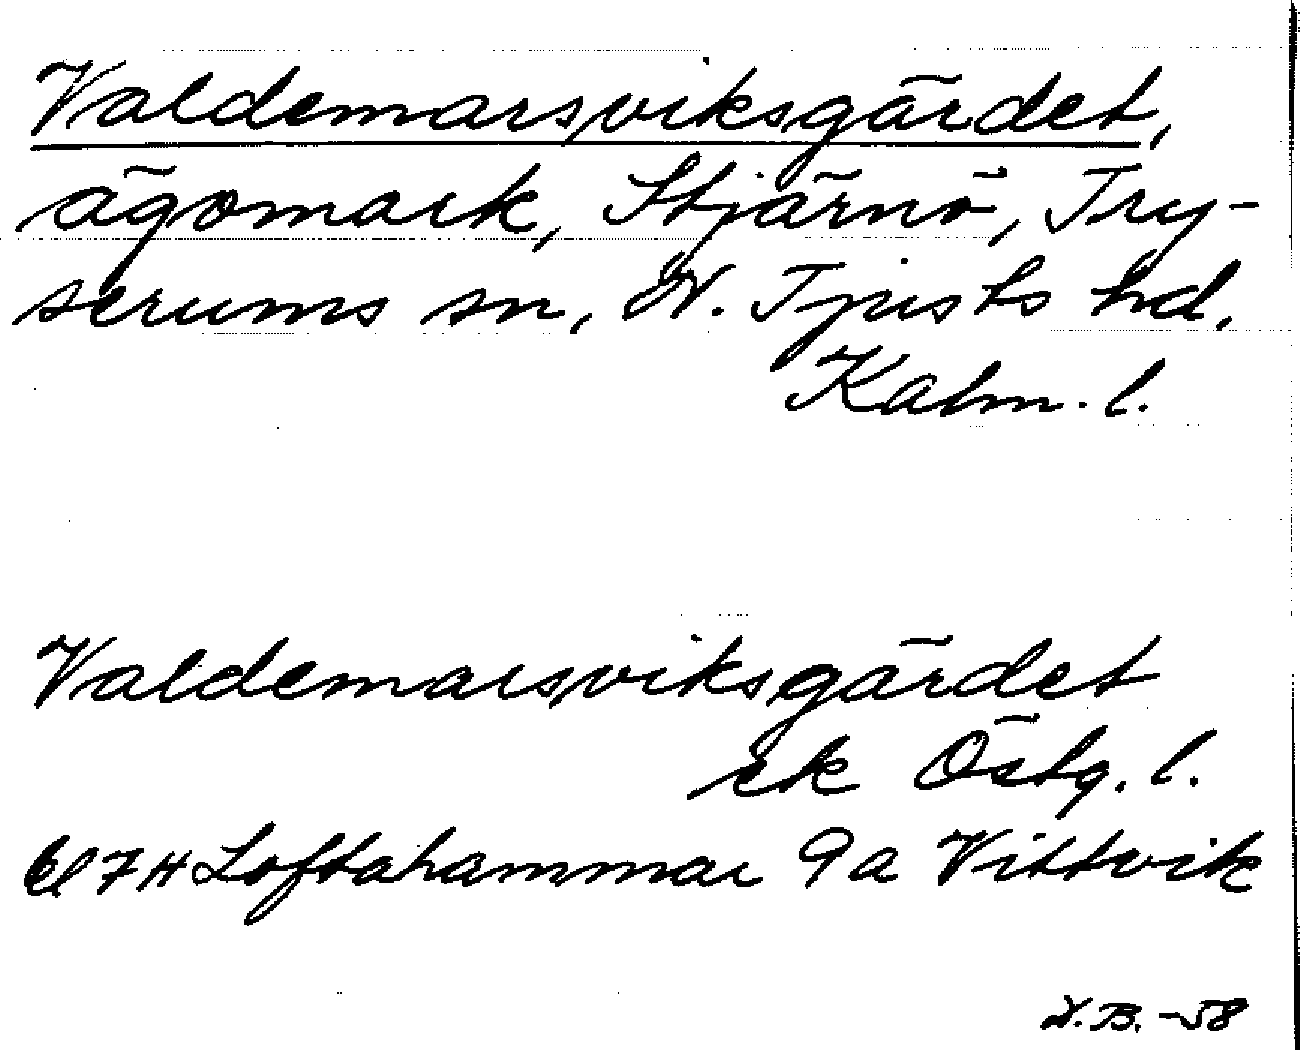 Valdemarsviksgärdet,
ägomark, Stjärnö, Try-
serums sn, N. Tjusts hd,
Kalm. l.
Valdemarsviksgärdet
ek Östg. l.
bl 7H Loftahammar 9a Vittvik
N.B. -58